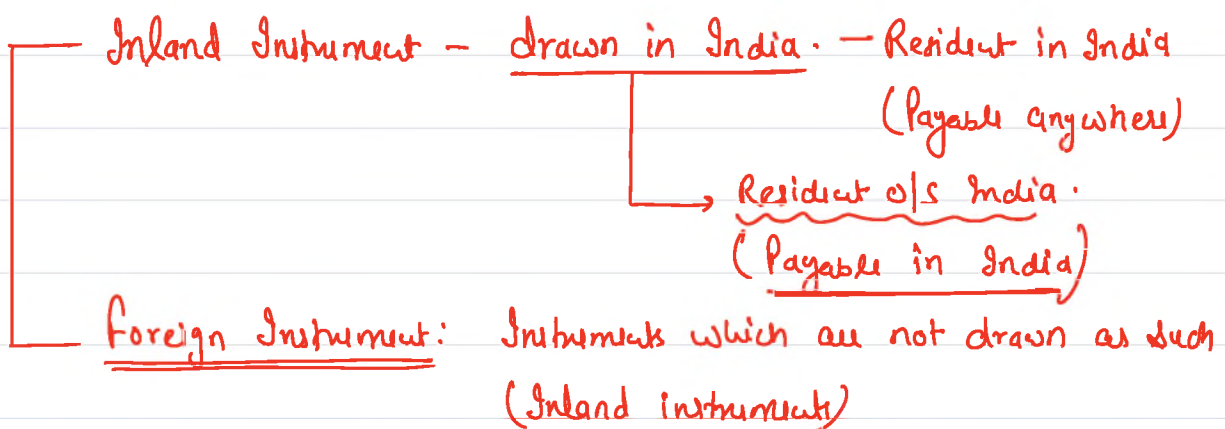 Inland Instrument - drawn in India. - Resident in India
(Payable anywhere)
Resident o/s India.
(Payable in India)
Foreign Instrument: Instruments which are not drawn as such
(Inland instruments)